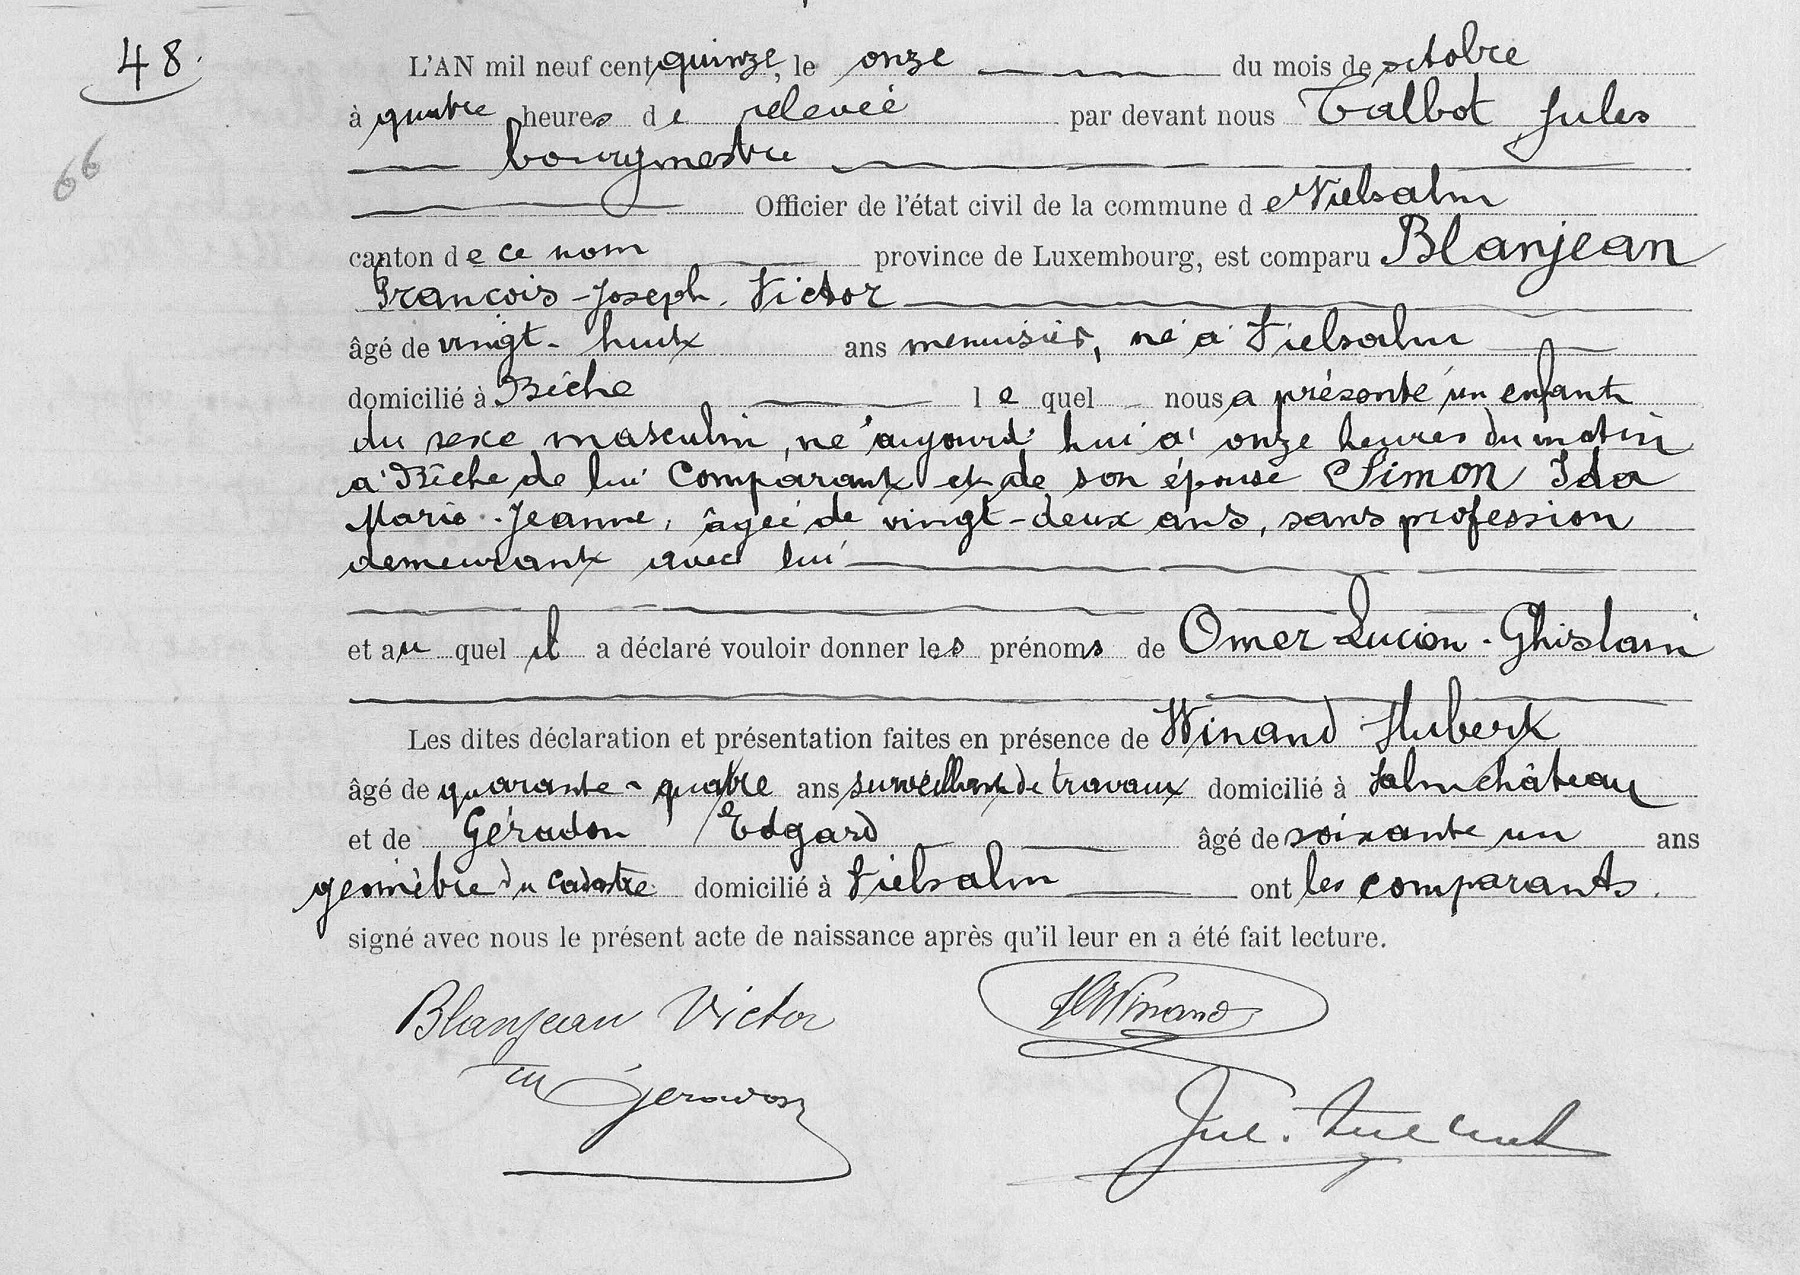 48.
66
L'AN mil neuf cent quinze, le onze du mois de octobre
à quatre heures de relevée par devant nous Talbot Jules
bourgmestre
Officier de l'état civil de la commune de Vielsalm
canton de ce nom province de Luxembourg, est comparu Blanjean
François-Joseph. Victor
âgé de vingt-huit ans menuisier, né à Vielsalm
domicilié à Bêche lequel nous a présenté un enfant
du sexe masculin, né aujourd'hui à onze heures du matin
à Bêche de lui comparant et de son épouse Simon Ida
Marie-Jeanne, âgée de vingt-deux ans, sans profession
demeurant avec lui
et auquel il a déclaré vouloir donner les prénoms de Omer-Lucien-Ghislain
Les dites déclaration et présentation faites en présence de Winand Hubert
âgé de quarante-quatre ans surveillant de travaux domicilié à Salmchâteau
et de Géradon Edgard âgé de soixante un ans
géomètre du cadastre domicilié à Vielsalm ont les comparants.
signé avec nous le présent acte de naissance après qu'il leur en a été fait lecture.
Blanjean Victor
HWinand
Géradon
Jul.